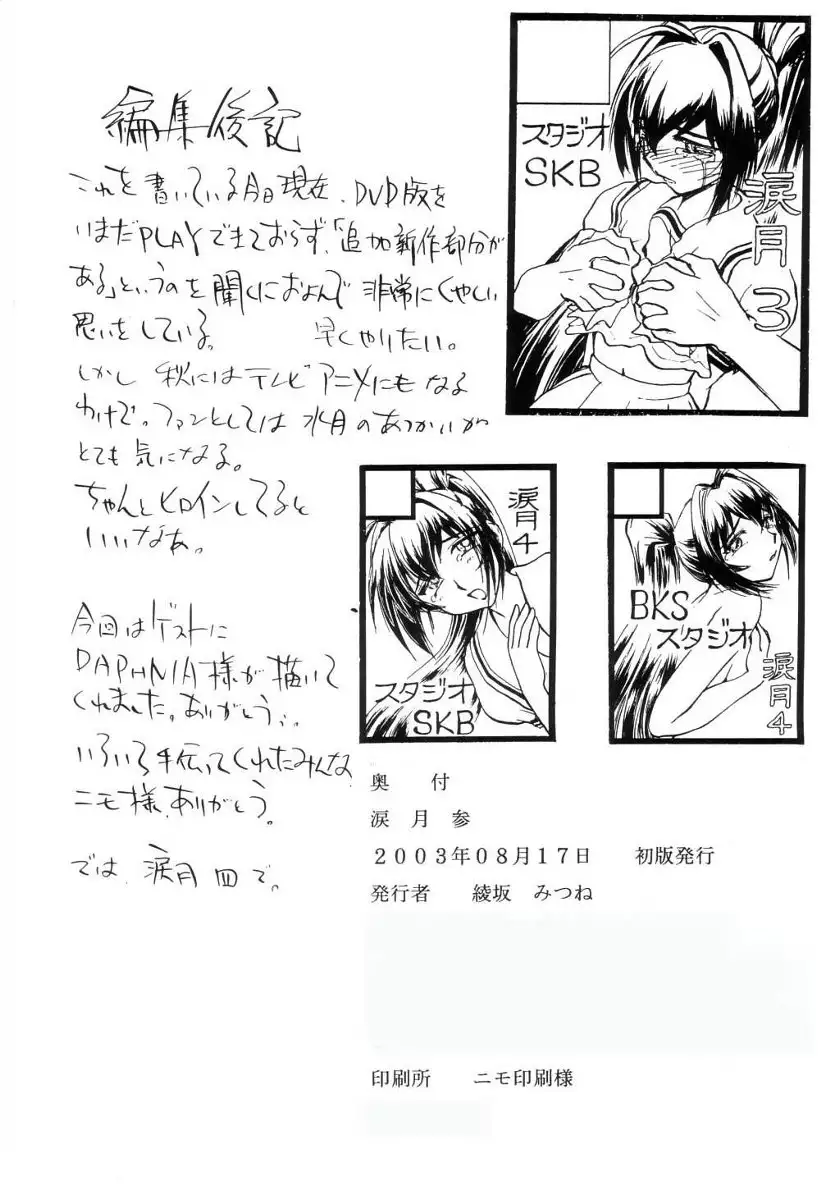 編集後記
これを書いている今日現在、DVD版を
いまだPLAYできておらず、「追加新作部分が
ある」というのを聞くにおよんで非常にくやしい
思いをしている。 早くやりたい。
しかし 秋にはテレビアニメにもなる
わけで。ファンとしては水月のあつかいが
とても気になる。
ちゃんとヒロインしてると
いいなあ。
今回はゲストに
DAPHNIA様が描いて
くれました。ありがとう。
いろいろ手伝ってくれたみんな
ニモ様、ありがとう。
では、涙月四で。
スタジオ
SKB
涙月3
涙月4
スタジオ
SKB
BKS
スタジオ
涙月4
奥 付
涙 月 参
2003年08月17日 初版発行
発行者 綾坂 みつね
印刷所 ニモ印刷様